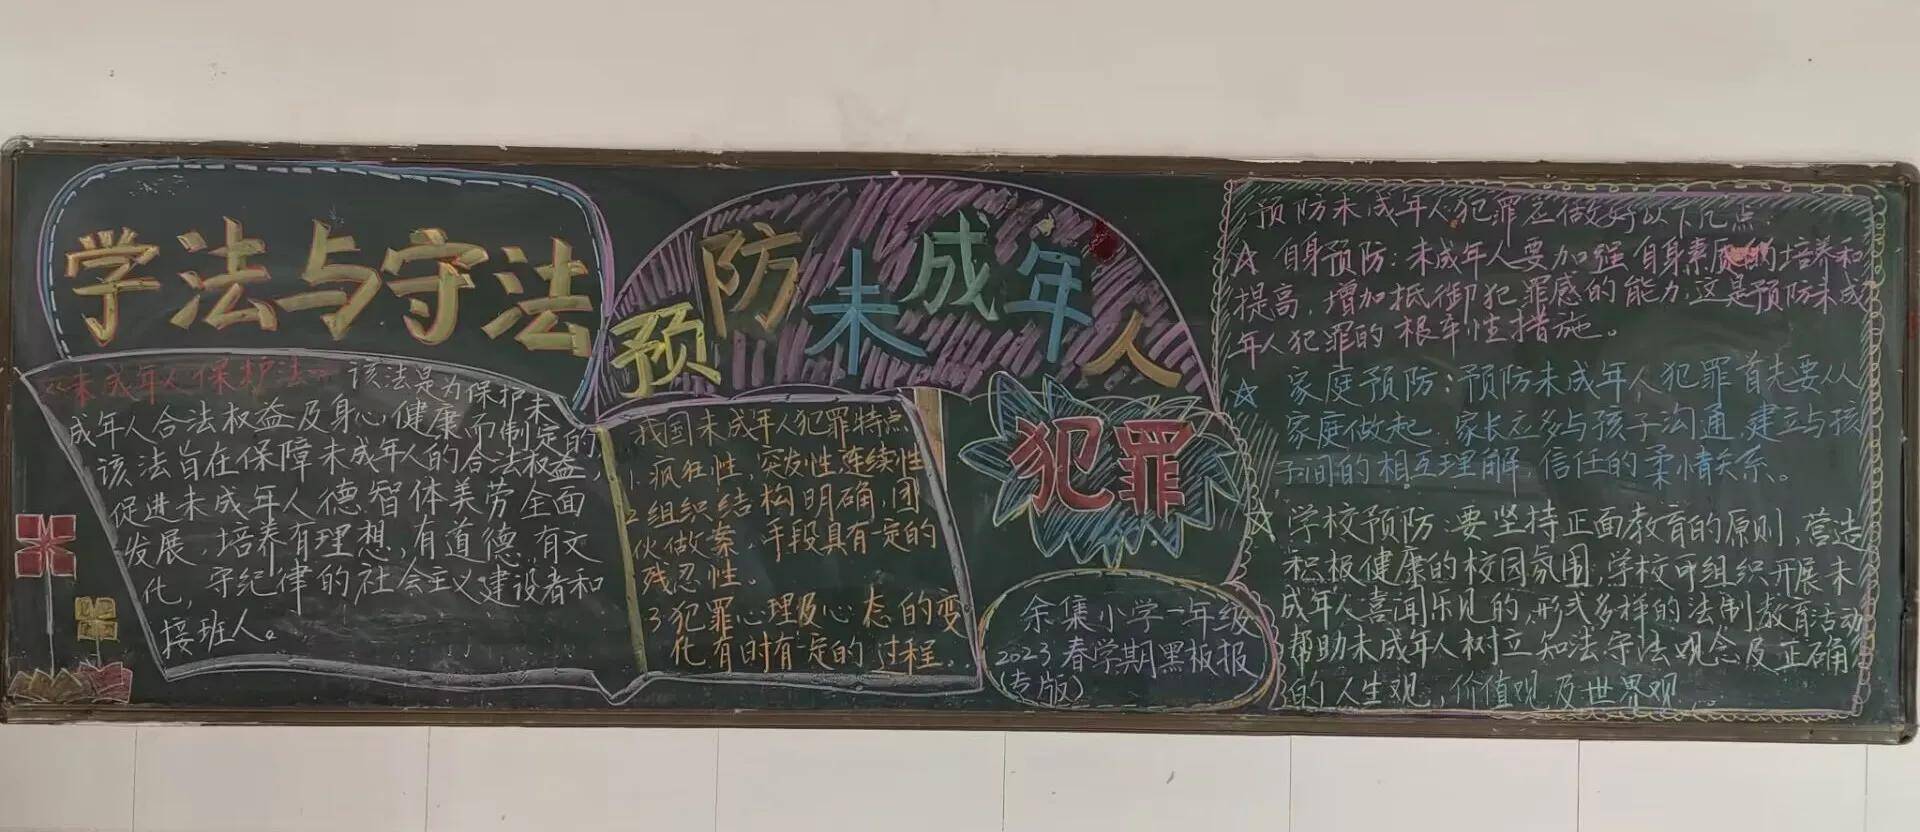 学法与守法
《未成年人保护法》 该法是为保护未
成年人合法权益及身心健康而制定的,
该法旨在保障未成年人的合法权益,
促进未成年人德智体美劳全面
发展,培养有理想,有道德,有文
化,守纪律的社会主义建设者和
接班人。
预防未成年人
犯罪
我国未成年人犯罪特点
1.疯狂性,突发性,连续性
2组织结构明确,团
伙做案,手段具有一定的
残忍性。
3犯罪心理及心态的变
化有时有一定的过程..
余集小学一年级
2023春学期黑板报
(专版)
预防未成年人犯罪应做好以下几点
☆ 自身预防:未成年人要加强自身素质的培养和
提高,增加抵御犯罪感的能力,这是预防未成
年人犯罪的根本性措施。
☆ 家庭预防:预防未成年人犯罪首先要从
家庭做起,家长应多与孩子沟通,建立与孩
子间的相互理解 信任的柔情关系。
☆ 学校预防:要坚持正面教育的原则,营造
积极健康的校园氛围,学校可组织开展未
成年人喜闻乐见的,形式多样的法制教育活动
帮助未成年人树立知法守法观念及正确
的人生观,价值观及世界观...